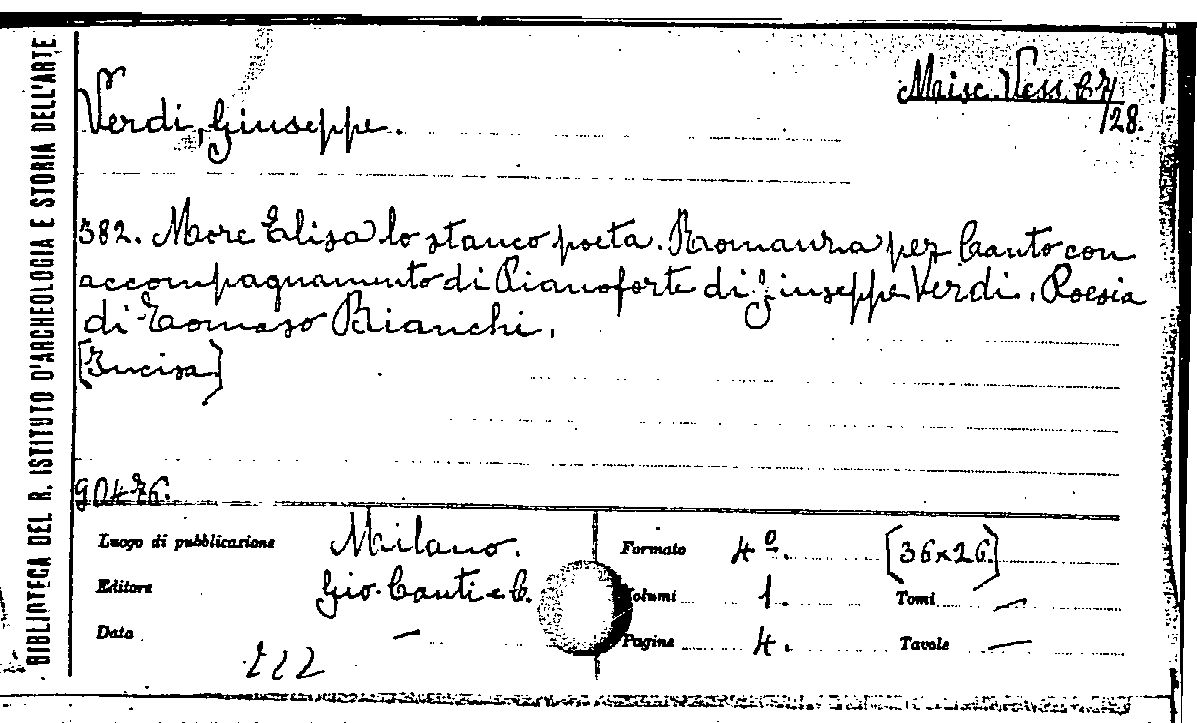 BIBLIOTECA DEL R. ISTITUTO D'ARCHEOLOGIA E STORIA DELL'ARTE
Misc. Vess. 
/28.
Verdi, Giuseppe.
382. More Elisa lo stanco poeta. Romanza per Canto con
accompagnamento di Pianoforte di Giuseppe Verdi. Poesia
di Tomaso Bianchi.
[Incisa]
90476.
Luogo di pubblicazione Milano.
Editore Gio. Canti e C.
Data —
Formato 4º. [36x26.]
Volumi 1. Tomi —
Pagine 4. Tavole —